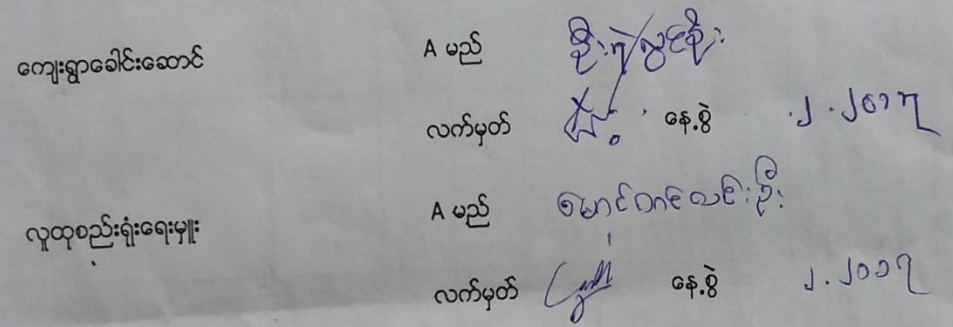 ကျေးရွာခေါင်းဆောင် A မည် ဦးရဲလွင်စိုး
လက်မှတ် နေ့စွဲ .၂.၂၀၁၇
လူထုစည်းရုံးရေးမှူး A မည် မောင်ဝင်းဦး
လက်မှတ် နေ့စွဲ ၂.၂၀၁၇